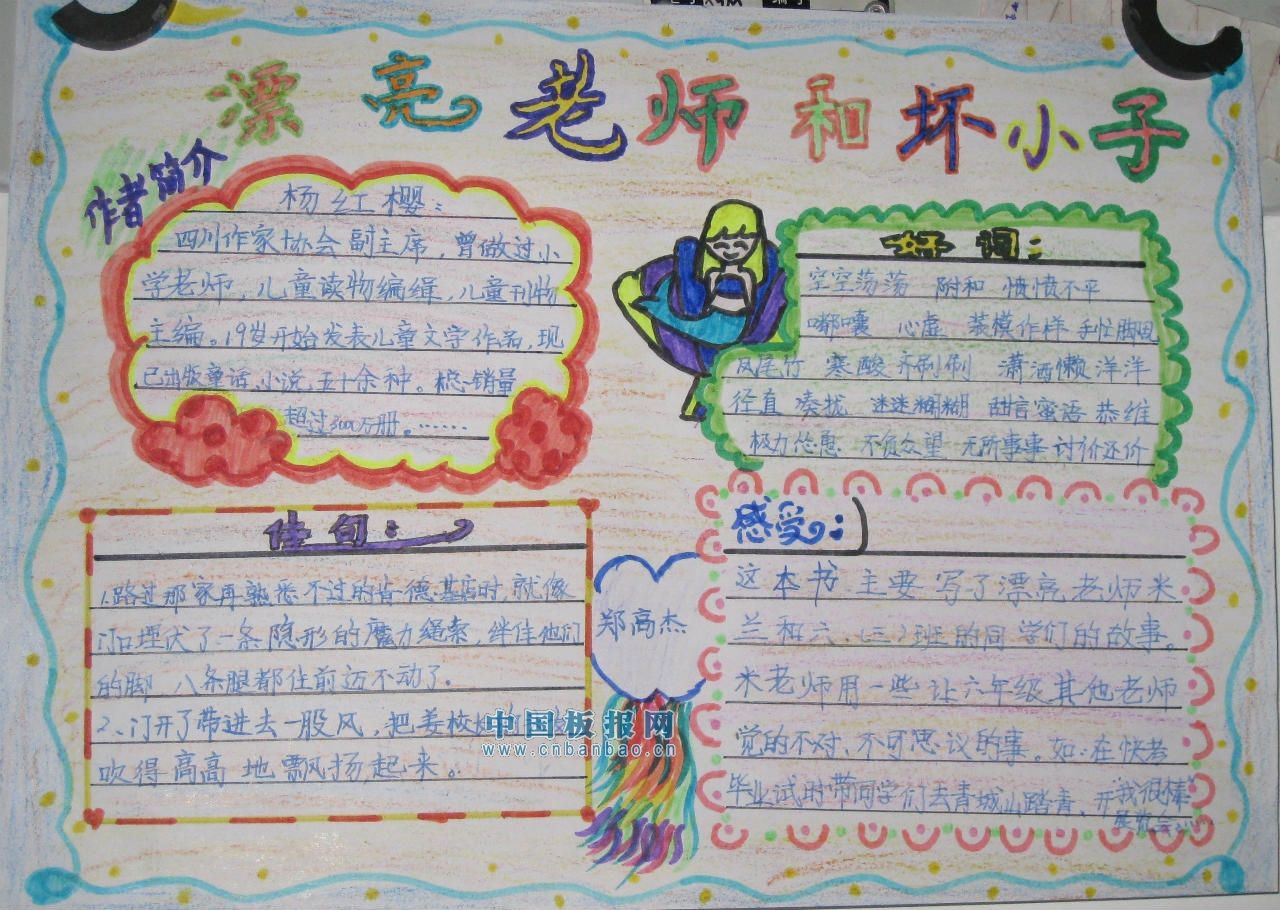 漂亮老师和坏小子
作者简介
杨红樱：
四川作家协会副主席，曾做过小
学老师，儿童读物编缉，儿童刊物
主编。19岁开始发表儿童文学作品，现
已出版童话，小说，五十余种。总销量
超过3000万册。……
好词：
空空荡荡 附和 愤愤不平
嘟囔 心虚 装模作样 手忙脚乱
凤尾竹 寒酸 齐刷刷 潇洒 懒洋洋
径直 凑拢 迷迷糊糊 甜言蜜语 恭维
极力怂恿 不负众望 无所事事 讨价还价
佳句：
1.路过那家再熟悉不过的肯德基店时，就像
门口埋伏了一条隐形的魔力绳索，绊住他们
的脚 八条腿都住前迈不动了.
2、门开了带进去一股风，把姜校
吹得高高地飘扬起来。
郑高杰
感受：
这本书主要写了漂亮老师米
兰和六.(三)班的同学们的故事。
米老师用一些让六年级其他老师
觉的不对，不可思议的事。如：在快考
毕业试时带同学们去青城山踏青、开"我很棒"
展览会……
中国板报网
www.cnbanbao.cn